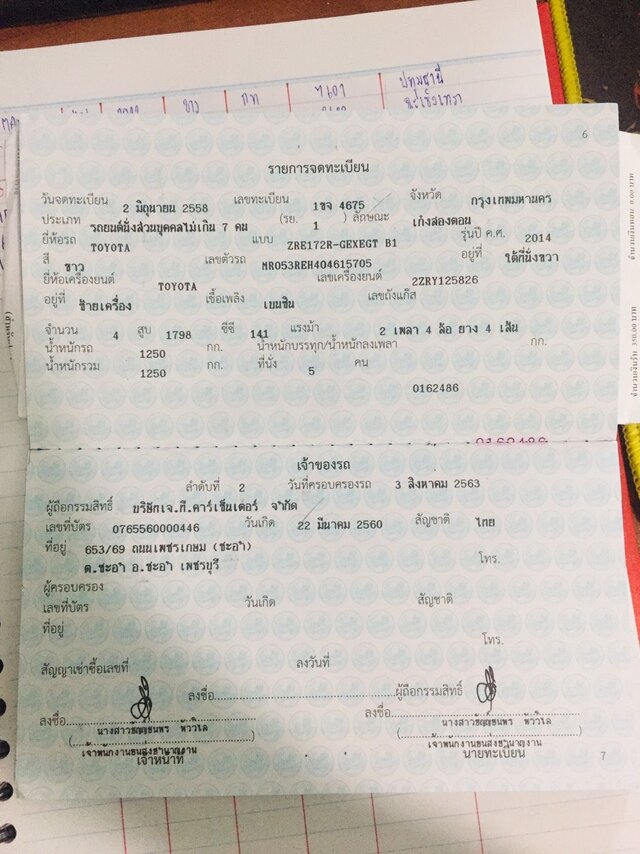 ขาว กท 7601 ปทุมธานี
ฉะเชิงเทรา
6
รายการจดทะเบียน
วันจดทะเบียน 2 มิถุนายน 2558 เลขทะเบียน 1ขจ 4675 จังหวัด กรุงเทพมหานคร
ประเภท รถยนต์นั่งส่วนบุคคลไม่เกิน 7 คน (รย. 1 ) ลักษณะ เก๋งสองตอน
ยี่ห้อรถ TOYOTA แบบ ZRE172R-GEXEGT B1 รุ่นปี ค.ศ. 2014
สี ขาว เลขตัวรถ MR053REH404615705 อยู่ที่ ใต้ที่นั่งขวา
ยี่ห้อเครื่องยนต์ TOYOTA เลขเครื่องยนต์ 2ZRY125826
อยู่ที่ ซ้ายเครื่อง เชื้อเพลิง เบนซิน เลขถังแก๊ส
จำนวน 4 สูบ 1798 ซีซี 141 แรงม้า 2 เพลา 4 ล้อ ยาง 4 เส้น
น้ำหนักรถ 1250 กก. น้ำหนักบรรทุก/น้ำหนักลงเพลา กก.
น้ำหนักรวม 1250 กก. ที่นั่ง 5 คน
0162486
0162486
เจ้าของรถ
ลำดับที่ 2 วันที่ครอบครองรถ 3 สิงหาคม 2563
ผู้ถือกรรมสิทธิ์ บริษัทเจ.ที.คาร์เซ็นเตอร์ จำกัด
เลขที่บัตร 0765560000446 วันเกิด 22 มีนาคม 2560 สัญชาติ ไทย
ที่อยู่ 653/69 ถนนเพชรเกษม (ชะอำ)
ต.ชะอำ อ.ชะอำ เพชรบุรี โทร.
ผู้ครอบครอง
เลขที่บัตร วันเกิด สัญชาติ
ที่อยู่
โทร.
สัญญาเช่าซื้อเลขที่ ลงวันที่
ลงชื่อ ผู้ถือกรรมสิทธิ์
ลงชื่อ ลงชื่อ
เจ้าพนักงานขนส่งชำนาญงาน เจ้าพนักงานขนส่งชำนาญงาน
เจ้าหน้าที่ นายทะเบียน
7